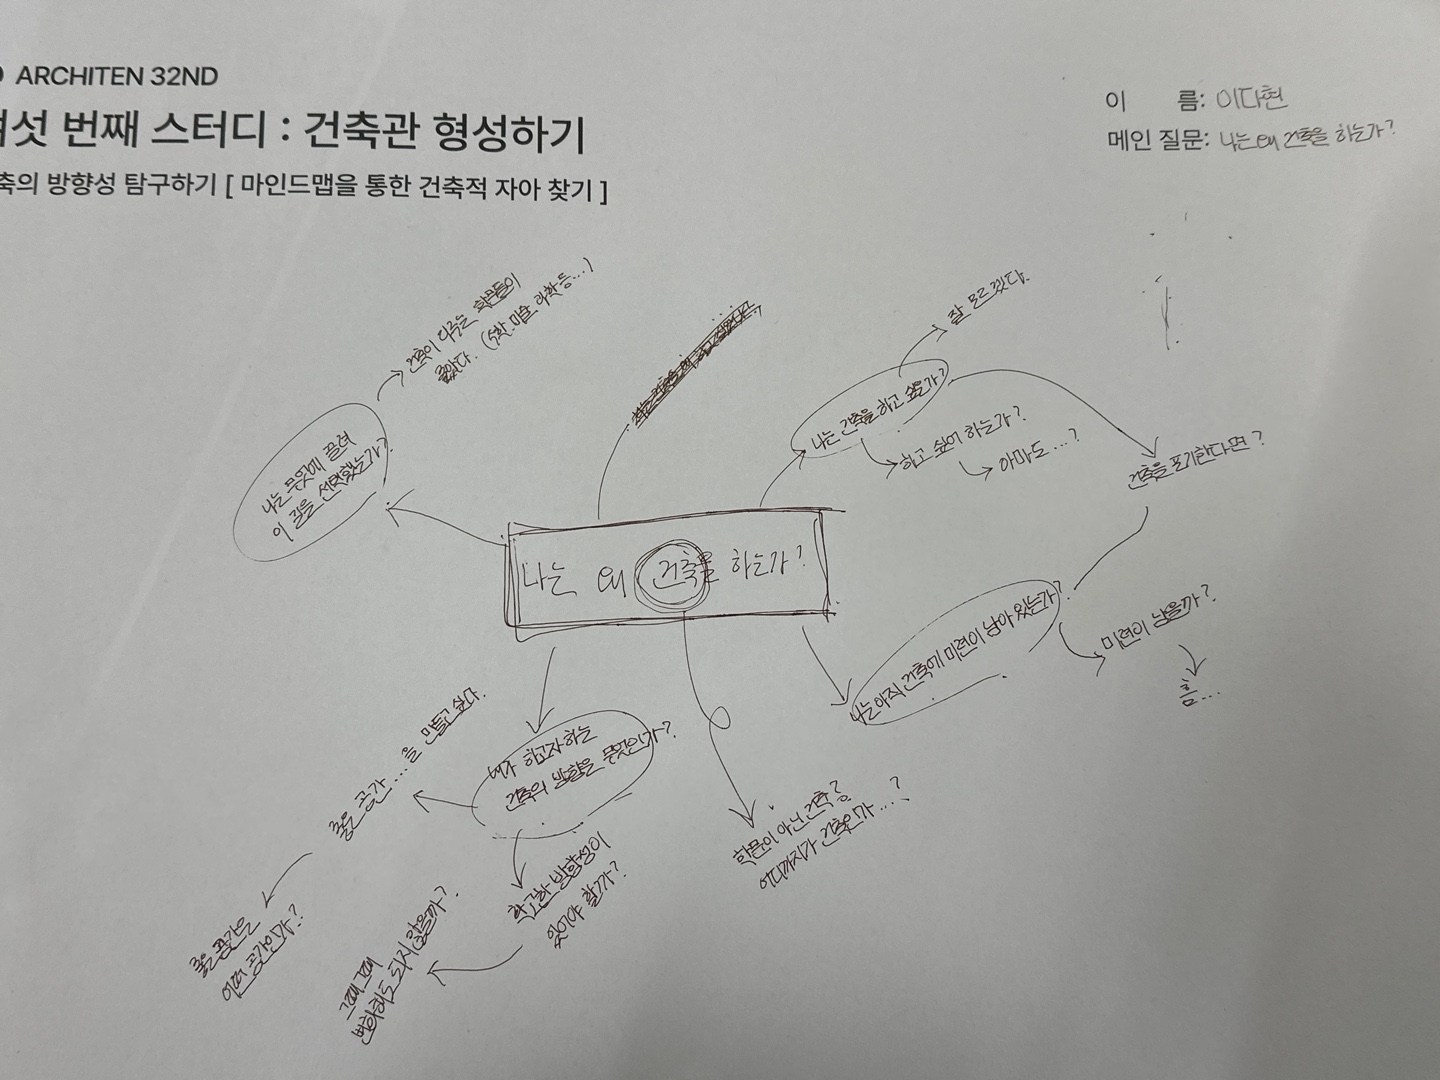 ARCHITEN 32ND
여섯 번째 스터디 : 건축관 형성하기
축의 방향성 탐구하기 [ 마인드맵을 통한 건축적 자아 찾기 ]
이 름: 이다현
메인 질문: 나는 왜 건축을 하는가?
건축이 다루는 학문들이
좋았다. (수학, 미술, 과학 등...)
나는 무엇에 끌려
이 길을 선택했는가?
잘 모르겠다.
나는 건축을 하고 싶은가?
하고 싶어 하는가?
아마도...?
건축을 포기한다면?
나는 왜 건축을 하는가?
나는 아직 건축에 미련이 남아 있는가?
미련이 남을까?
흠...
내가 하고자 하는
건축의 방향은 무엇인가?
좋은 공간...을 만들고 싶다.
좋은 공간은
어떤 공간인가?
확고한 방향성이
있어야 할까?
그때그때
변화해도 되지 않을까?
학문이 아닌 건축?
어디까지가 건축인가...?